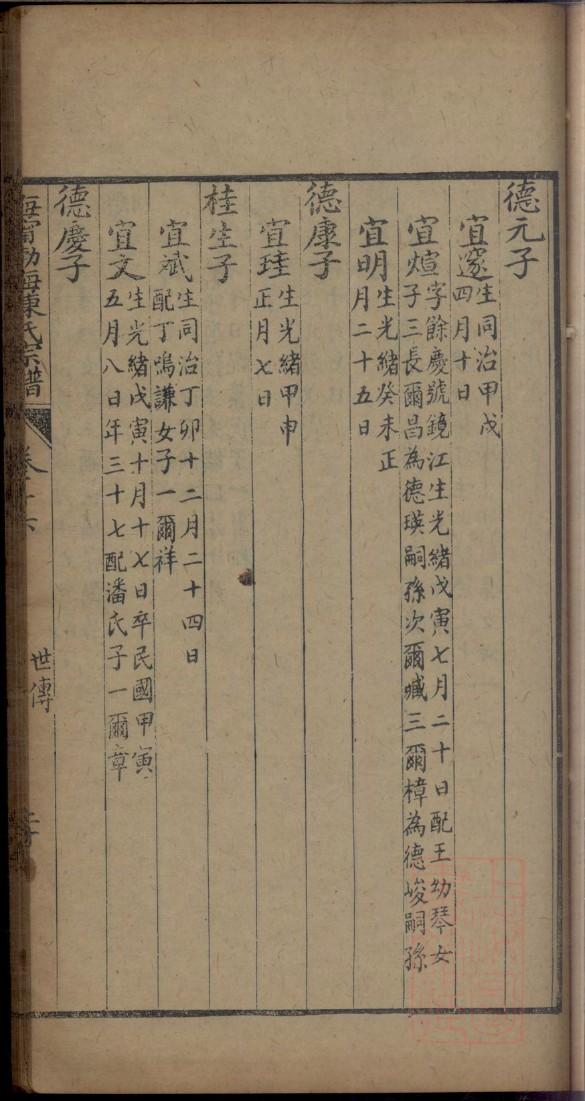 德元子
宜邃生同治甲戌
四月十日
宜煊字餘慶號鏡江生光緒戊寅七月二十日配王幼琴女
子三長爾昌為德瑛嗣孫次爾臧三爾樟為德峻嗣孫
宜明生光緒癸未正
月二十五日
德康子
宜珪生光緒甲申
正月七日
桂生子
宜斌生同治丁卯十二月二十四日
配丁鳴謙女子一爾祥
宜文生光緒戊寅十月十七日卒民國甲寅
五月八日年三十七配潘氏子一爾章
德慶子
海甯渤海陳氏宗譜
世傳